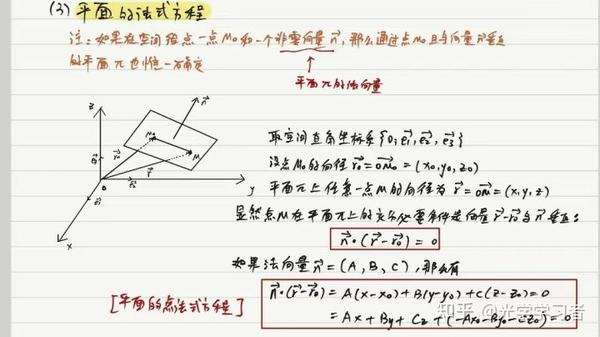 (3) 平面的法式方程
注：如果在空间给点一点M₀和一个非零向量n⃗，那么通过点M₀且与向量n⃗垂直
的平面π也唯一确定
平面π的法向量
取空间直角坐标系{O;e⃗₁,e⃗₂,e⃗₃}
设点M₀的向径r⃗₀=OM⃗₀=(x₀,y₀,z₀)
平面π上任意一点M的向径为r⃗=OM⃗=(x,y,z)
显然点M在平面π上的充分必要条件是向量r⃗-r⃗₀与n⃗垂直：
n⃗·(r⃗-r⃗₀)=0
如果法向量n⃗=(A,B,C)，那么有
n⃗·(r⃗-r⃗₀)=A(x-x₀)+B(y-y₀)+C(z-z₀)=0
[平面的点法式方程]
=Ax+By+Cz+(-Ax₀-By₀-Cz₀)=0
知乎 @光学学习者